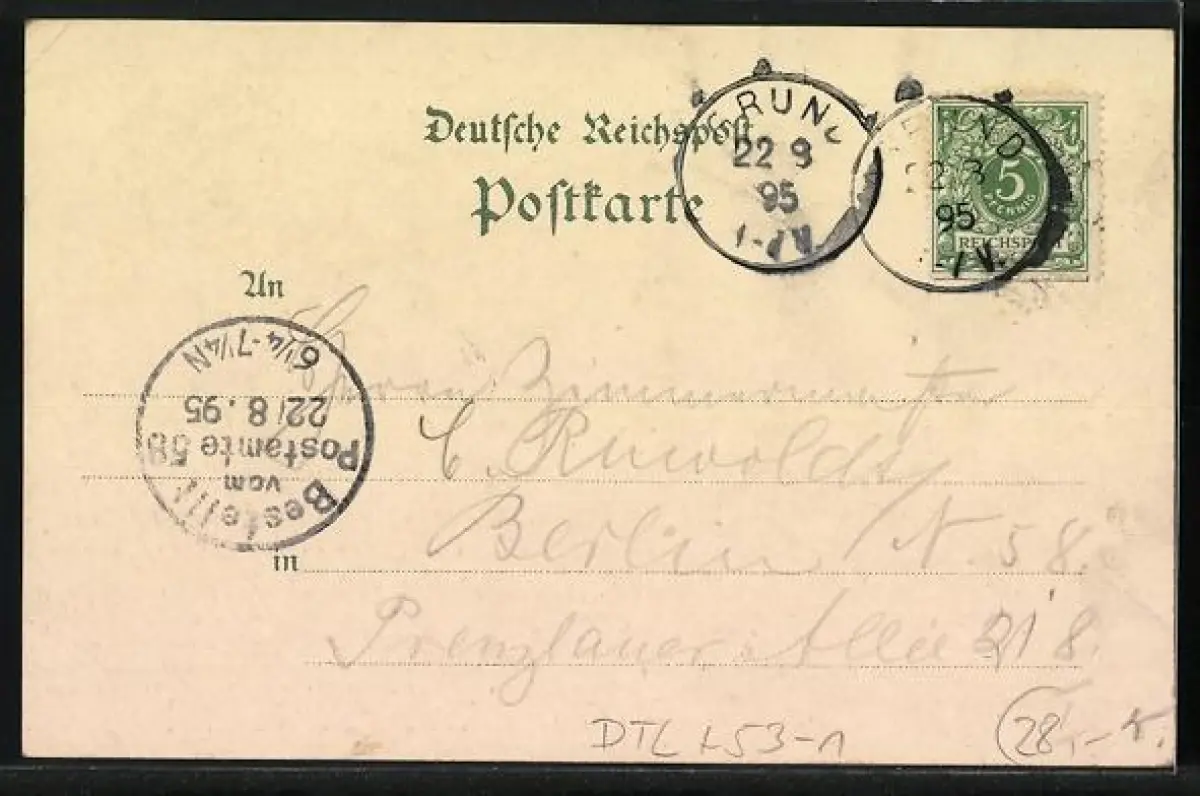 Deutsche Reichspost
Postkarte
RUN
22 8
95
22 8
95
5
PFENNIG
REICHSPOST
An
Herrn Zimmermeister
C. Ruwoldt
in Berlin N. 58.
Prenzlauer Allee 218.
Bestellt
vom
Postamte 58
22/8.95
6¼-7¼N
DTL 153-1
(28,-